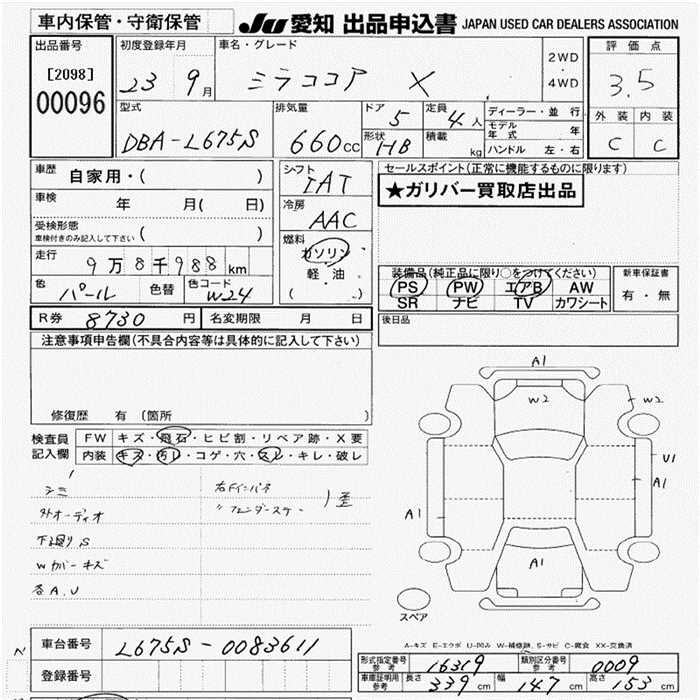 車内保管・守衛保管
JU 愛知 出品申込書 JAPAN USED CAR DEALERS ASSOCIATION
出品番号
[2098]
00096
初度登録年月
23 9月
車名・グレード
ミラココア X
2WD
・
4WD
評価点
3.5
外装 内装
C C
型式
DBA-L675S
排気量
660cc
ドア 5
形状 HB
定員 4人
積載 kg
ディーラー・並行
モデル年式 年
ハンドル 左・右
車歴 自家用・( )
車検 年 月( 日)
受検形態
車検付きのみ記入して下さい ( )
走行 9万8千988km
色 パール 色替 色コード W24
シフト
IAT
冷房
AAC
燃料
ガソリン・
軽・油
( )
セールスポイント(正常に機能するものに限ります)
★ガリバー買取店出品
装備品(純正品に限り○をつけてください)
PS PW エアB AW
SR ナビ TV カワシート
新車保証書
有・無
後日品
R券 8730円 名変期限 月 日
注意事項申告欄(不具合内容等は具体的に記入して下さい)
修復歴 有 (箇所 )
検査員記入欄
FW キズ・飛石・ヒビ割・リペア跡・X要
内装 キズ・汚レ・コゲ・穴・スレ・キレ・破レ
シミ
外オーディオ
下廻りS
Wカバーキズ
各A.U
右Fインパネ
〃フェンダーステー
A1
W2
W2
U1
A1
A1
A1
スペア
A-キズ E-エクボ U-凹み W-補修跡 S-サビ C-腐食 XX-交換済
車台番号 L675S-0083611
登録番号
形式指定番号 参考 16319 類別区分番号 参考 0009
車庫証明用 参考 長さ 339cm 幅 147cm 高さ 153cm